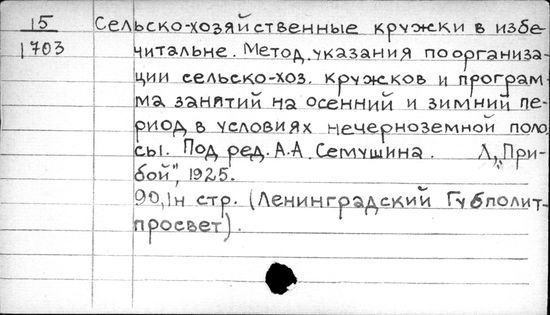 15
1703
Сельско-хозяйственные кружки в избе
читальне. Метод. указания по организа-
ции сельско-хоз. кружков и програм-
ма занятий на осенний и зимний пе-
риод в условиях нечерноземной поло
сы. Под ред. А.А. Семушина. Л, „При-
бой", 1925.
90,1н стр. (Ленинградский Губполит-
просвет).